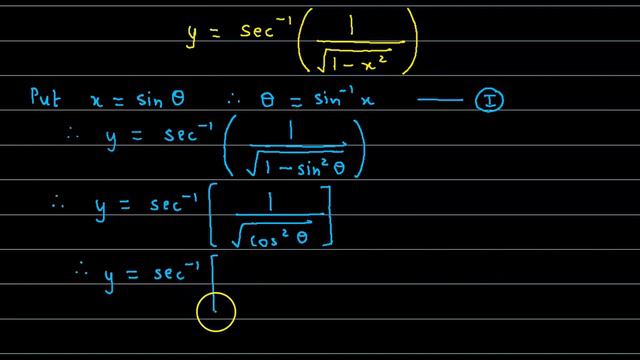 y = sec⁻¹ ( 1 / √(1 − x²) )
Put x = sin θ ∴ θ = sin⁻¹ x —— Ⓘ
∴ y = sec⁻¹ ( 1 / √(1 − sin² θ) )
∴ y = sec⁻¹ [ 1 / √(cos² θ) ]
∴ y = sec⁻¹ [